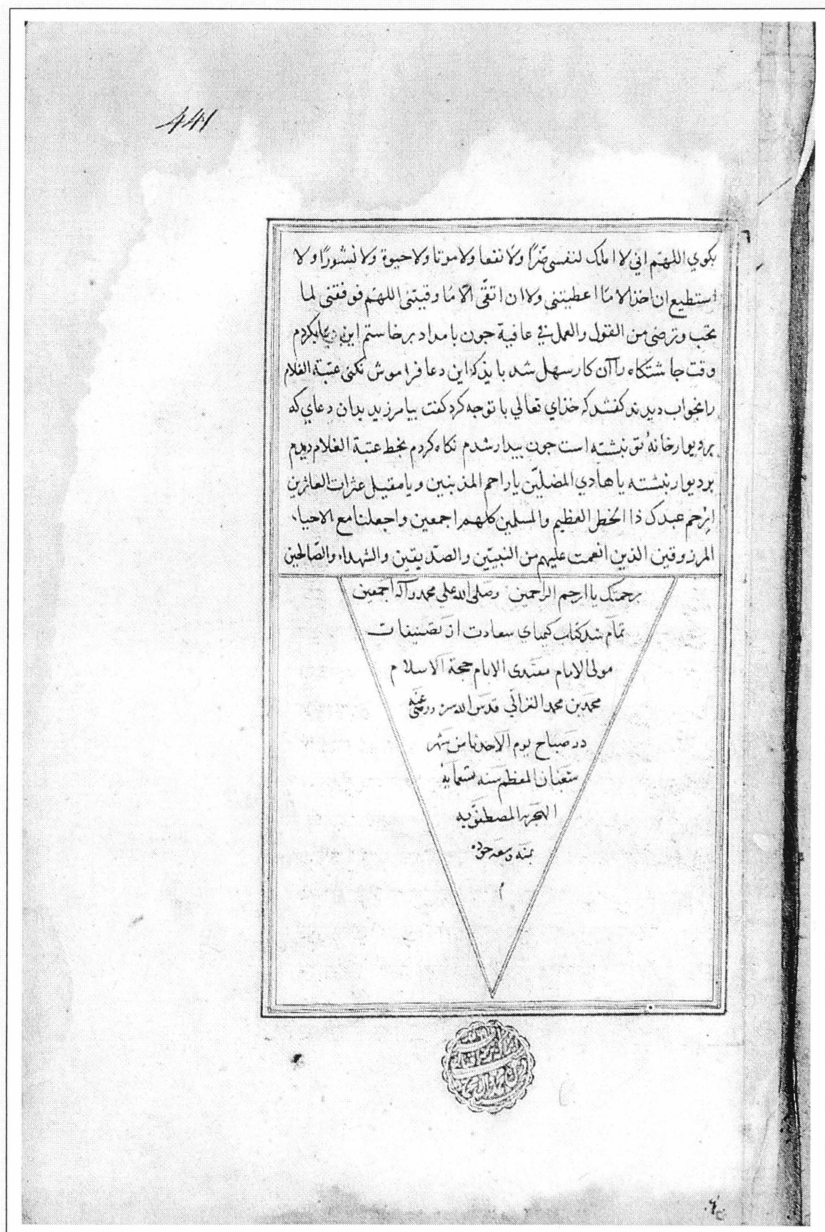 441
بكوي اللهم اني لا املك لنفسى ضرًّا ولا نفعا ولا موتا ولا حيوة ولا نشورًا ولا
استطيع ان اخذ الا ما اعطيتنى ولا ان اتقى الا ما وقيتنى اللهم فوفقنى لما
تحب وترضى من القول والعمل في عافية جون بامداد برخاستم اين دعا بكردم
وقت جاشتكاه را آن كار سهل شد بايد كه اين دعا فراموش نكنى عتبة الغلام
را بخواب ديدند كفتند كه خداي تعالي با تو جه كرد كفت بيامرزيد بدان دعاي كه
بر ديوار خانه تو نبشته است جون بيدار شدم نكاه كردم بخط عتبة الغلام ديدم
بر ديوار نبشته يا هادي المضلين يا راحم المذنبين ويا مقيل عثرات العاثرين
ارحم عبدك ذا الخطر العظيم والمسلمين كلهم اجمعين واجعلنا مع الاحياء
المرزوقين الذين انعمت عليهم من النبيين والصديقين والشهداء والصالحين
برحمتك يا ارحم الراحمين وصلى الله علي محمد وآله اجمعين
تمام شد كتاب كيمياي سعادت از تصنيفات
مولى الانام مقتدى الايام حجة الاسلام
محمد بن محمد الغزالي قدس الله سره ورضى عنه
در صباح يوم الاحد ثامن شهر
شعبان المعظم سنه تسعمايه
الهجرية المصطفويه
بمنه وسعة جوده
م